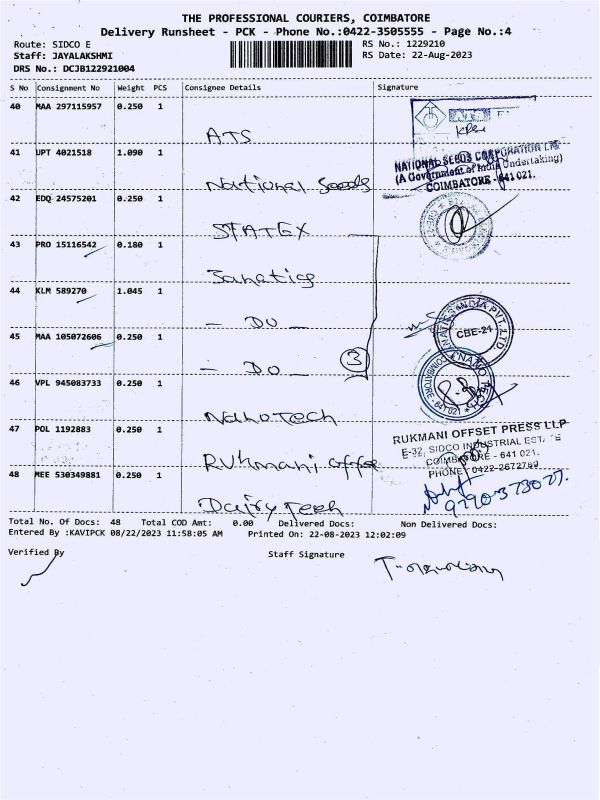 THE PROFESSIONAL COURIERS, COIMBATORE
Delivery Runsheet - PCK - Phone No.:0422-3505555 - Page No.:4
Route: SIDCO E
RS No.: 1229210
Staff: JAYALAKSHMI
RS Date: 22-Aug-2023
DRS No.: DCJB122921004
S No Consignment No Weight PCS Consignee Details Signature
40 MAA 297115957 0.250 1
ATS
41 UPT 4021518 1.090 1
National Seeds
NATIONAL SEEDS CORPORATION LTD
(A Government of India Undertaking)
COIMBATORE - 641 021.
42 EDQ 24575201 0.250 1
STATEX
43 PRO 15116542 0.180 1
44 KLM 589270 1.045 1
- DO -
INDIA PVT. LTD
CBE-21
45 MAA 105072606 0.250 1
- DO - 3
COIMBATORE - 641 021
46 VPL 945083733 0.250 1
Nanotech
47 POL 1192883 0.250 1
Rukmani offset
RUKMANI OFFSET PRESS LLP
E-32, SIDCO INDUSTRIAL EST.
COIMBATORE - 641 021.
PHONE : 0422-2672769
48 MEE 530349881 0.250 1
Dairy Tech
Total No. Of Docs: 48 Total COD Amt: 0.00 Delivered Docs: Non Delivered Docs:
Entered By :KAVIPCK 08/22/2023 11:58:05 AM Printed On: 22-08-2023 12:02:09
Verified By Staff Signature